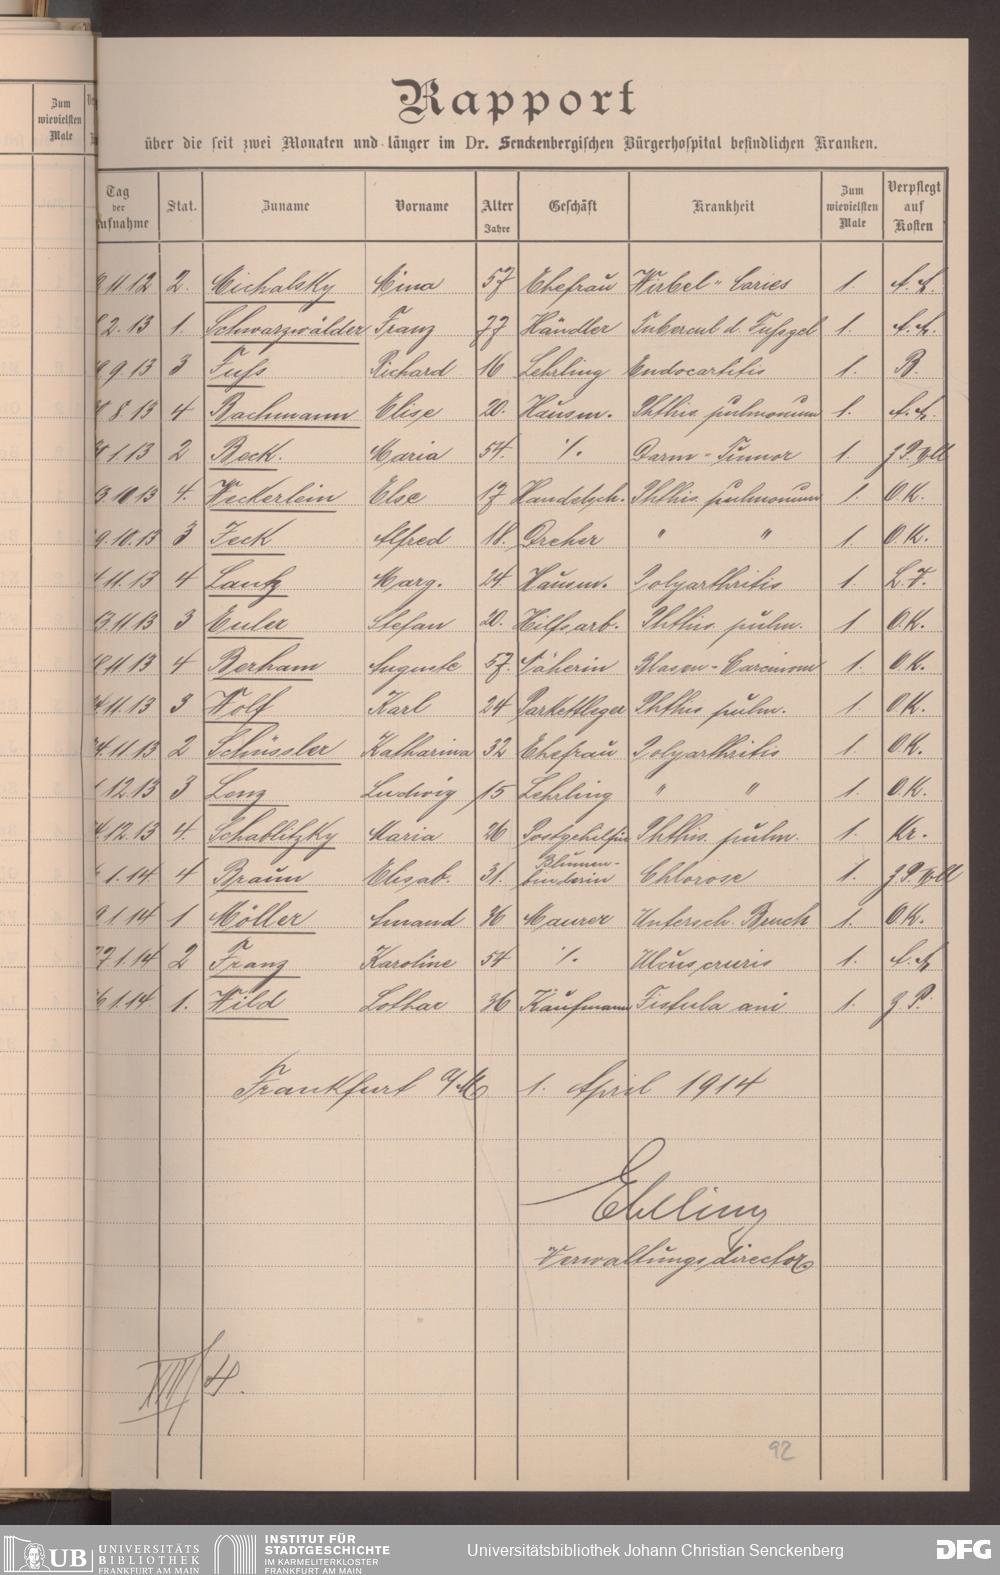 Zum
wievielsten
Male
Rapport
über die seit zwei Monaten und länger im Dr. Senckenbergischen Bürgerhospital befindlichen Kranken.
Tag der Aufnahme Stat. Zuname Vorname Alter Jahre Geschäft Krankheit Zum wievielsten Male Verpflegt auf Kosten
11.12 2. Michalsky Mina 57 Ehefrau Wirbel-Caries 1.
2.13 1. Schwarzwälder Franz 77 Händler Tubercul d. Fußgel 1.
9.13 3 Fuß Richard 16 Lehrling Endocartitis 1. B.
8.13 4 Bachmann Elise 20. Hausm. Phthis. pulmonum 1.
1.13 2 Beck. Maria 54. ٪ Darm-Tumor 1.
3.10 13 4. Weckerlein Else 17 Phthis. pulmonum 1. O.K.
9.10.13 3 Jeck Alfred 18. Dreher " " 1. O.K.
11.13 4 Lautz Marg. 24 Hausm. Polyarthritis 1.
3.11 13 3 Euler Stefan 20. Hilfsarb. Phthis. pulm. 1 O.K.
11.13 4 Berham Auguste 57. Näherin Carcinom 1. O.K.
4.11.13 3 Wolf Karl 24 Parkettleger Phthis pulm. 1. O.K.
4.11.13 2 Schüssler Katharina 32 Ehefrau Polyarthritis 1. O.K.
12.13 3 Lenz Ludwig 15 Lehrling " " 1. O.K.
4.12.13 4. Schablitzky Maria 26 Postgehilfin Phthis. pulm. 1. Kr.
1.14 4 Braun Elisab. 31. Blumen-binderin Chlorose 1.
1.14 1 Möller Amand 36 Maurer Untersch. Bruch 1. O.K.
7 1.14 2 Franz Karoline 54 ٪ Ulcus cruris 1.
6 1.14. 1. Wild Lothar 36 Kaufmann Fistula ani 1. z. P.
Frankfurt a/M 1. April 1914
Ebeling
Verwaltungsdirector
XIII/4.
92
UB UNIVERSITÄTS
BIBLIOTHEK
FRANKFURT AM MAIN
INSTITUT FÜR
STADTGESCHICHTE
IM KARMELITERKLOSTER
FRANKFURT AM MAIN
Universitätsbibliothek Johann Christian Senckenberg
DFG